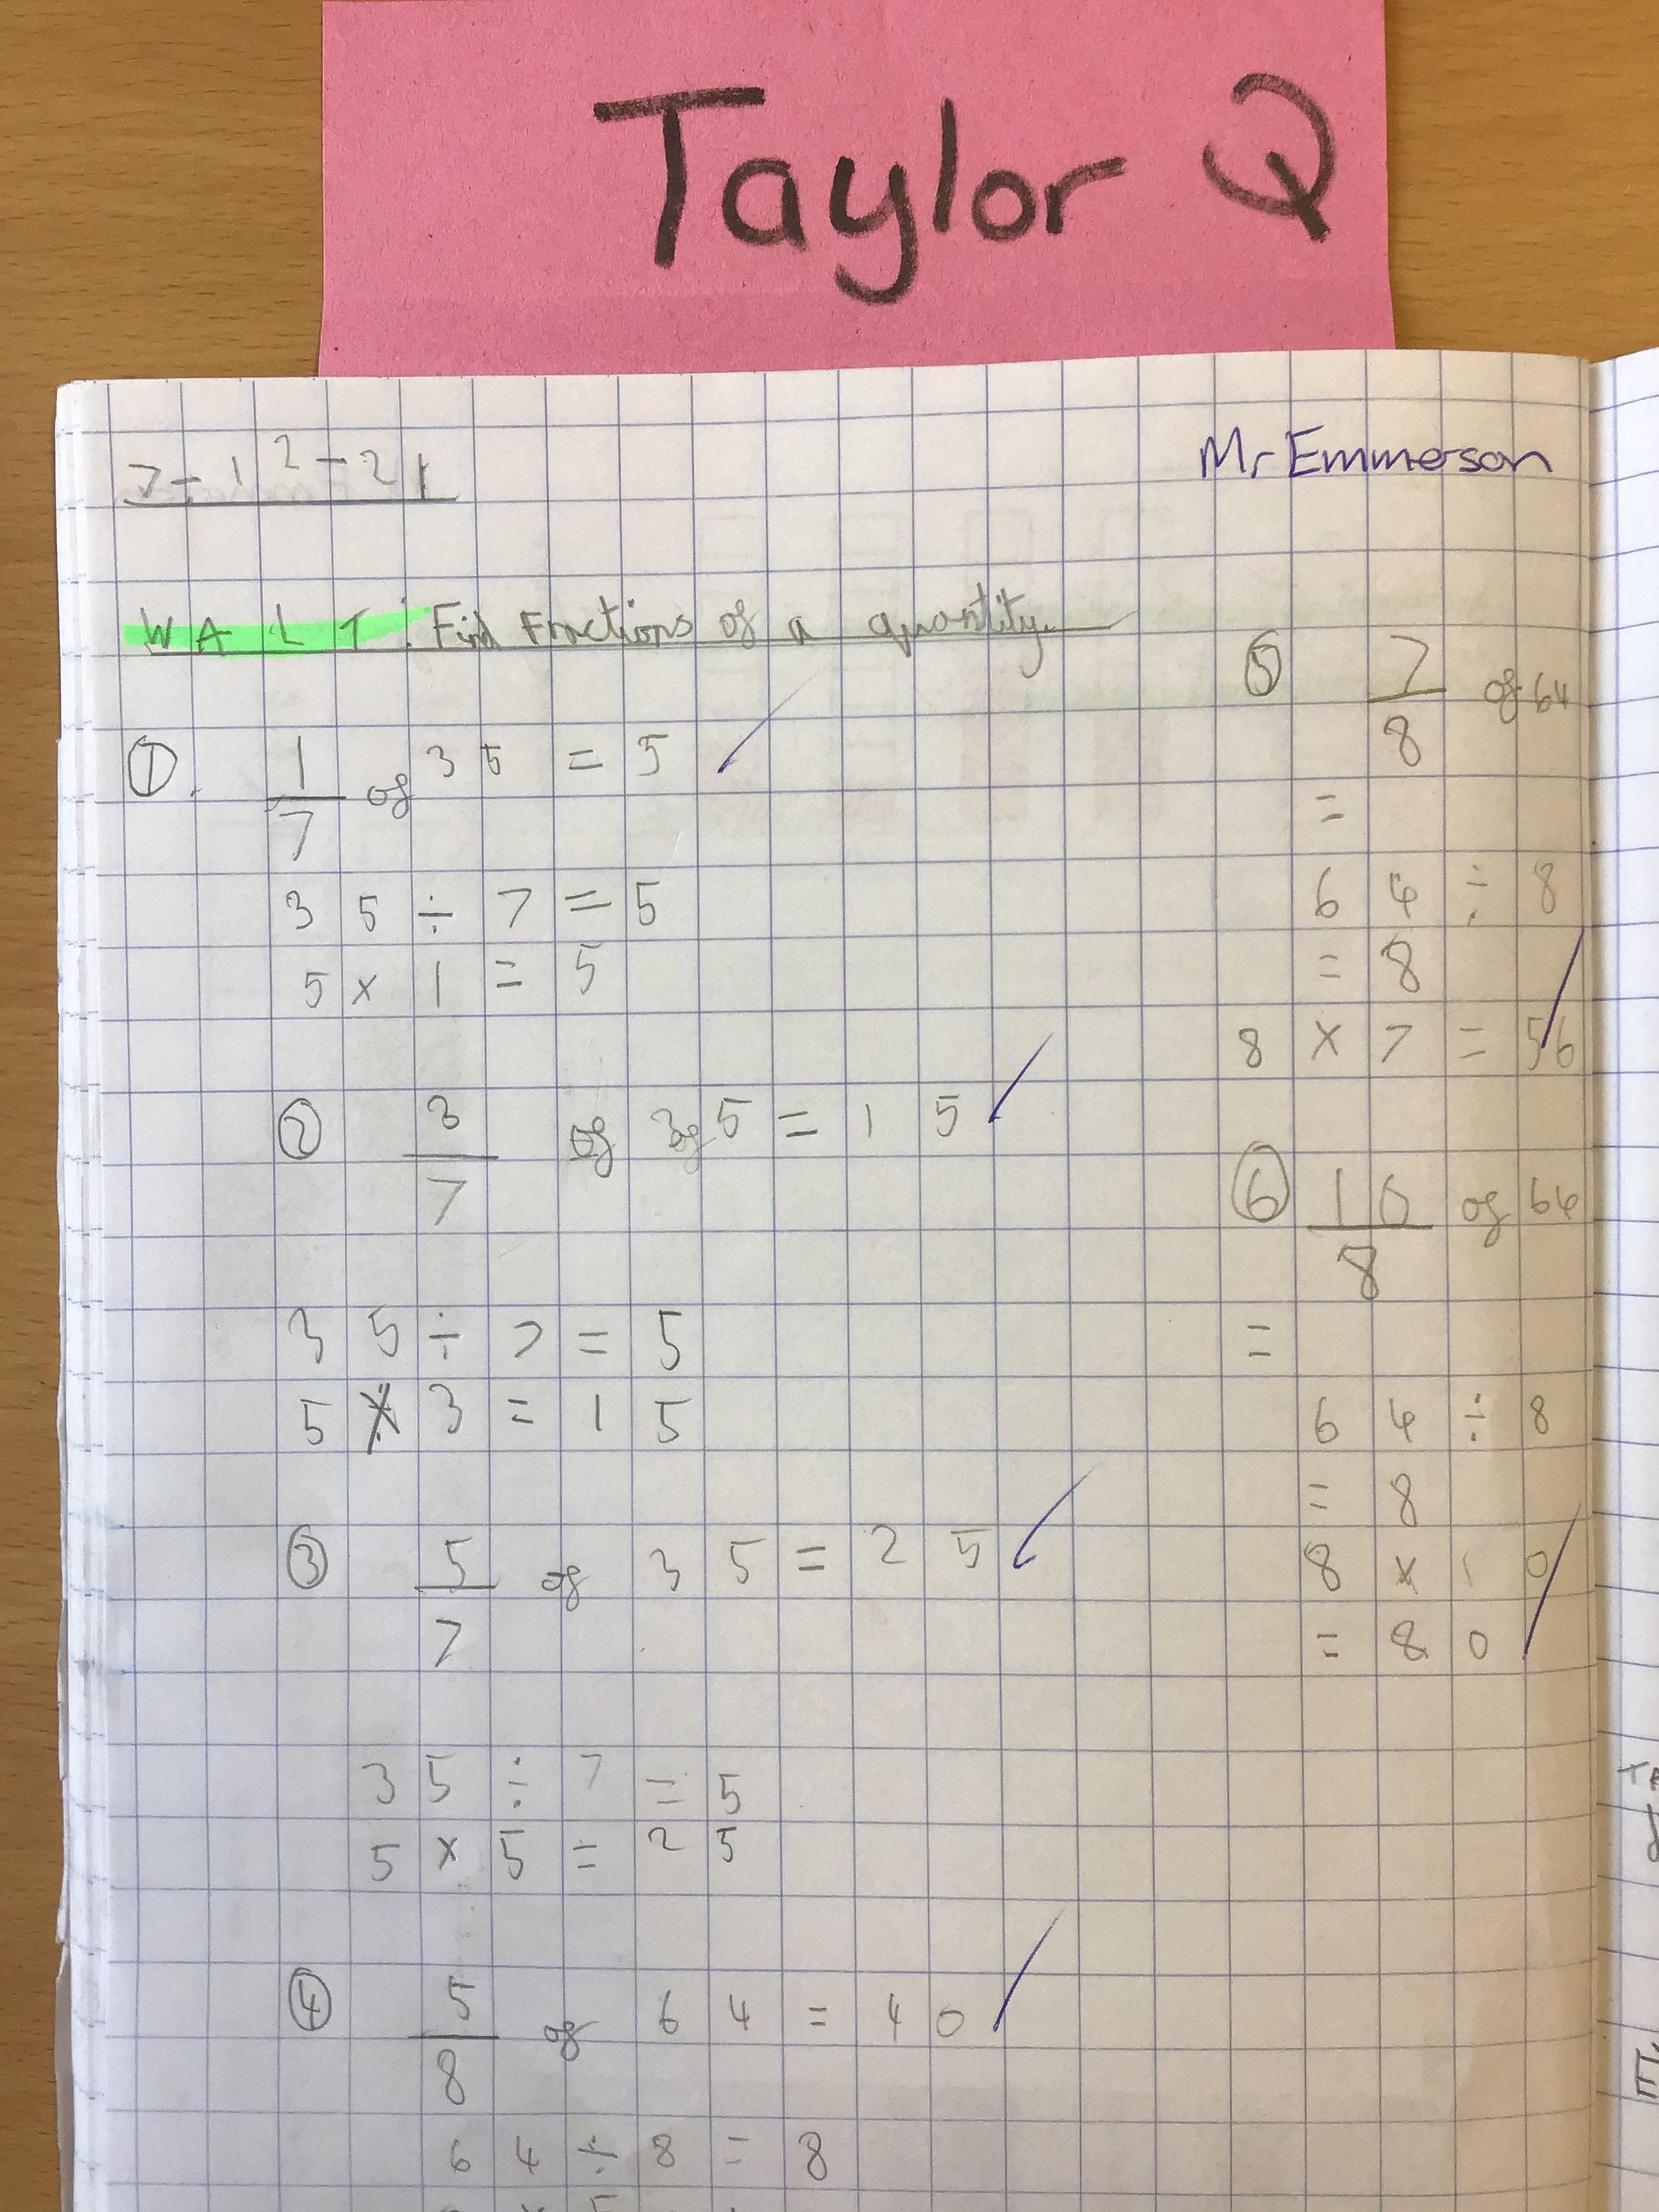 Taylor Q
7-12-21
Mr Emmerson
WALT: Find Fractions of a quantity
① 1/7 of 35 = 5
35 ÷ 7 = 5
5 × 1 = 5
② 3/7 of 35 = 15
35 ÷ 7 = 5
5 × 3 = 15
③ 5/7 of 35 = 25
35 ÷ 7 = 5
5 × 5 = 25
④ 5/8 of 64 = 40
64 ÷ 8 = 8
⑤ 7/8 of 64
=
64 ÷ 8
= 8
8 × 7 = 56
⑥ 10/8 of 64
=
64 ÷ 8
= 8
8 × 10
= 80